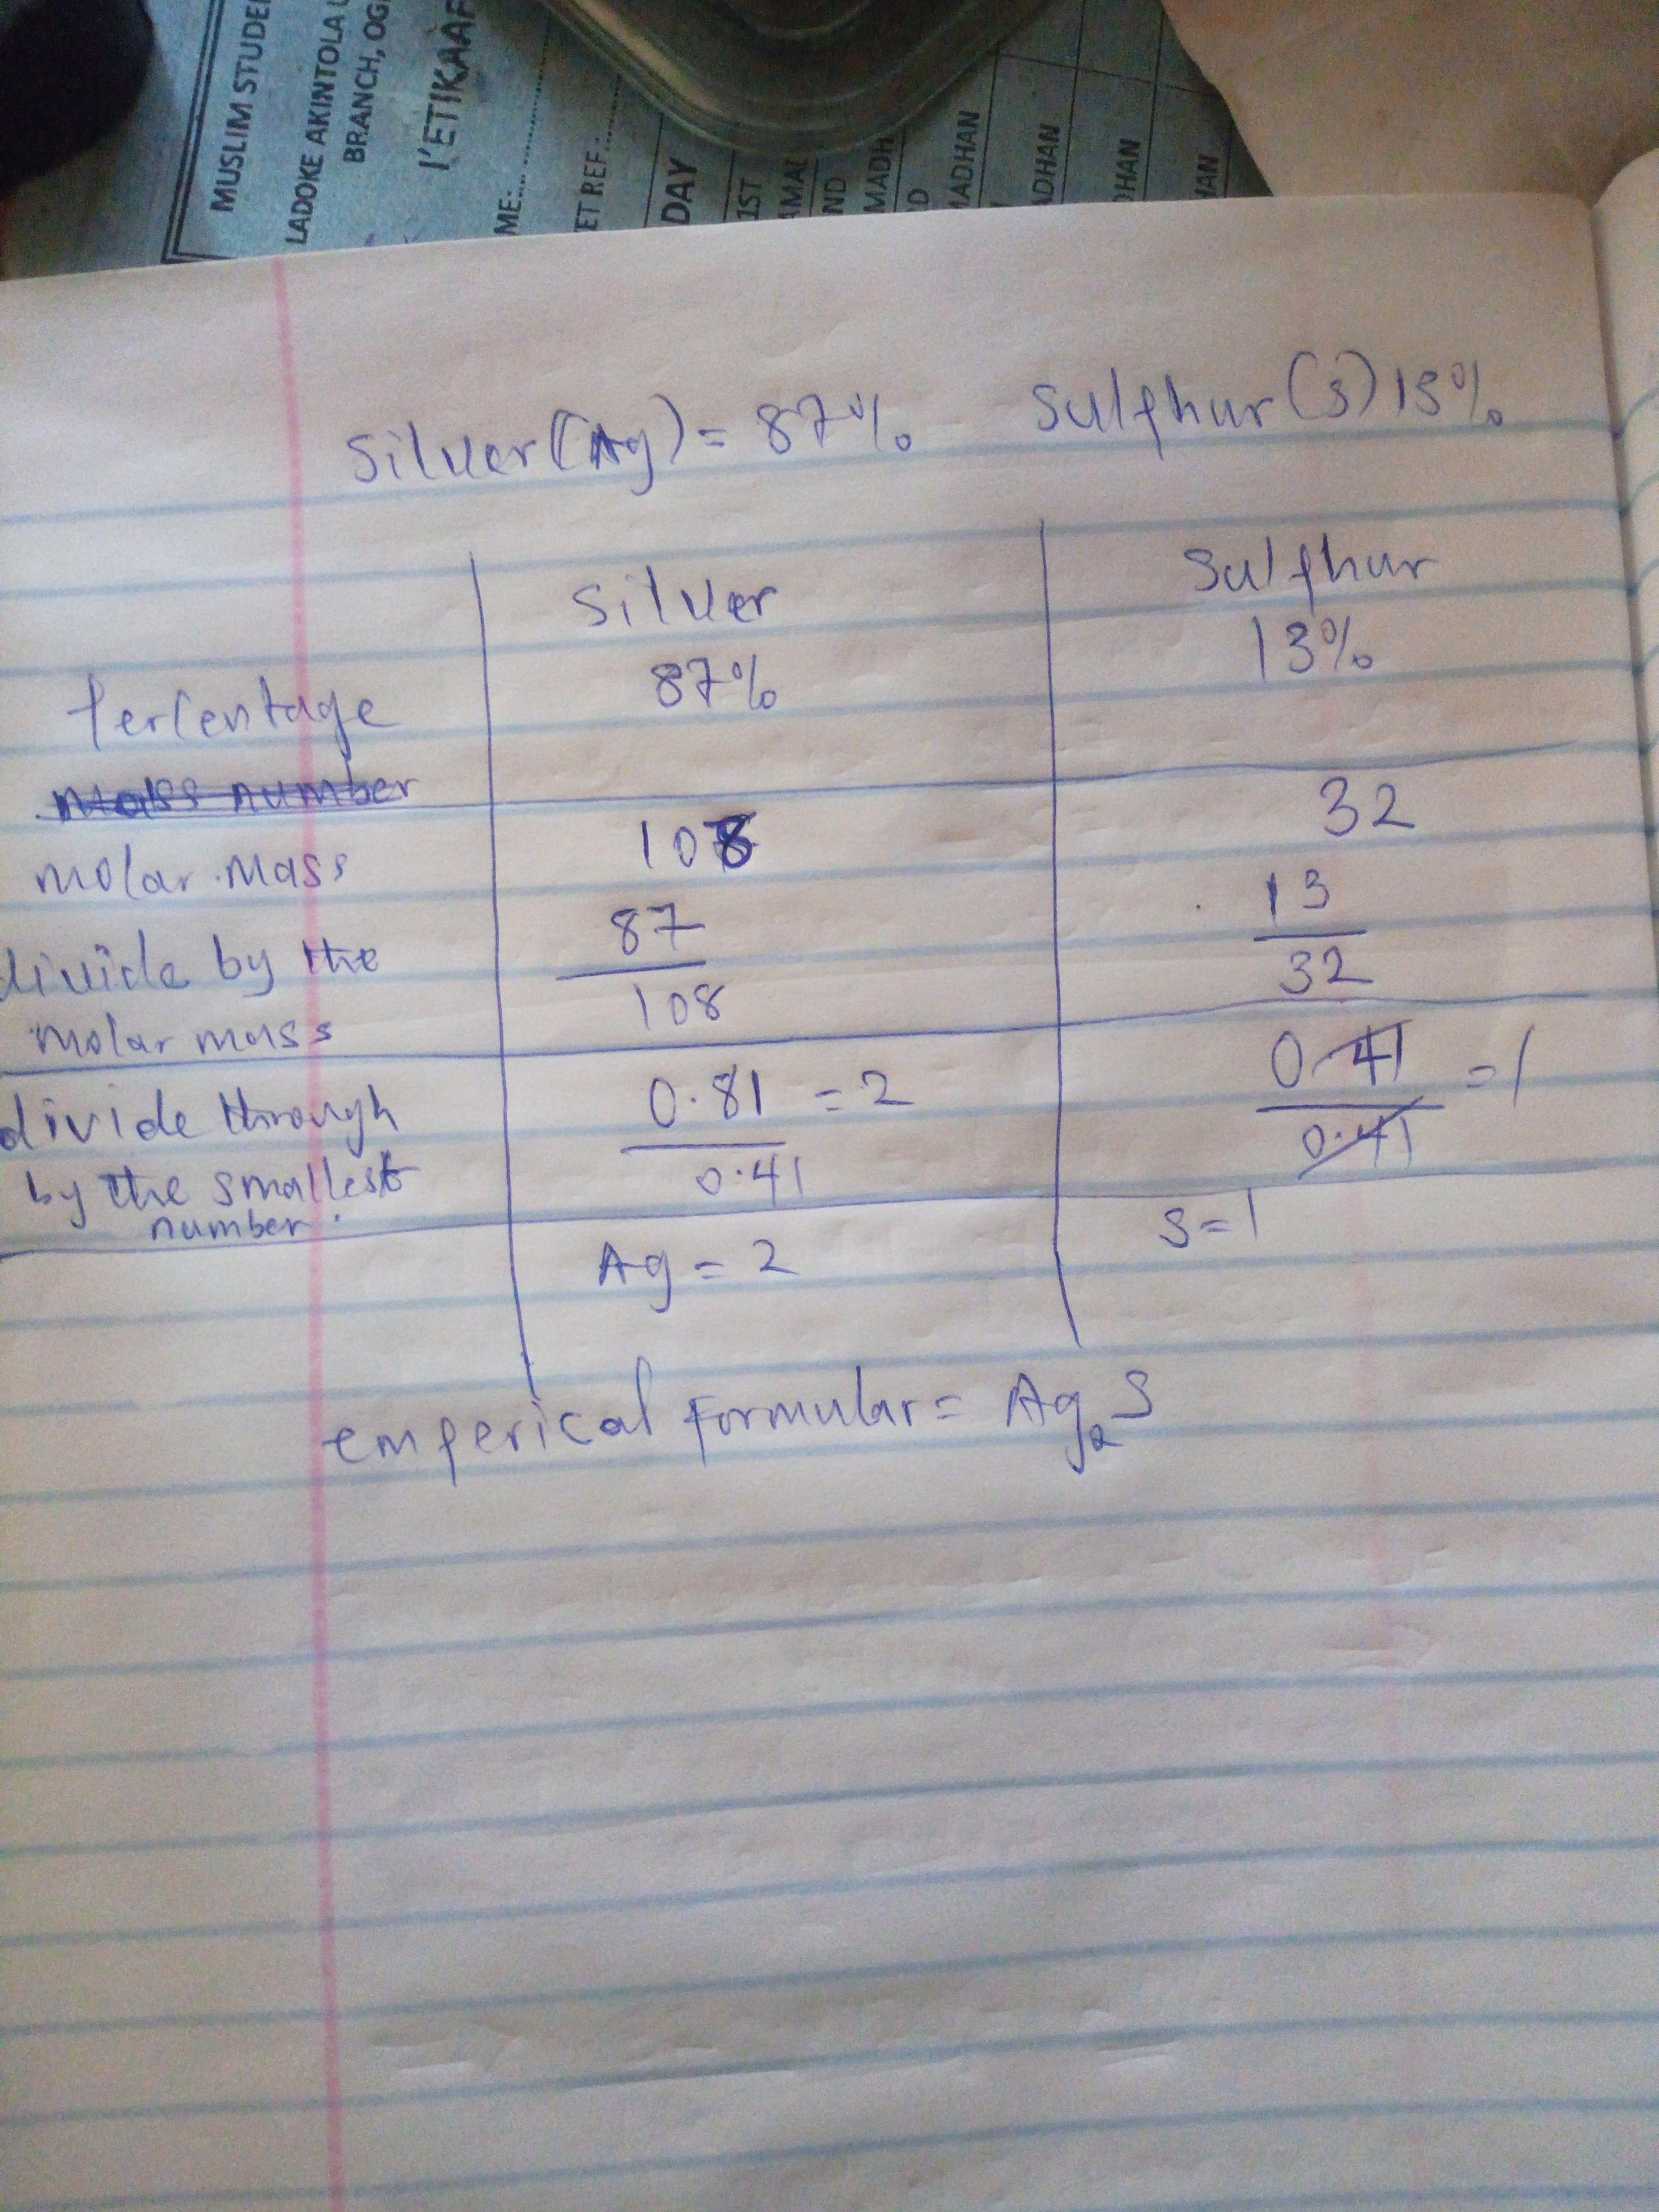 MUSLIM STUDE
LADOKE AKINTOLA
BRANCH, OG
I'ETIKAAF
ME:..................
ET REF:.......
DAY
1ST
AMAL
ND
MADH
D
MADHAN
ADHAN
DHAN
HAN
Silver (Ag) = 87% Sulphur (S) 13%
Silver Sulphur
Percentage 87% 13%
mass number
molar mass 108 32
divide by the 87 13
108 32
molar mass
divide through 0.81 = 2 0.41 = 1
0.41 0.41
by the smallest
number.
Ag = 2 S = 1
emperical formular = Ag₂S